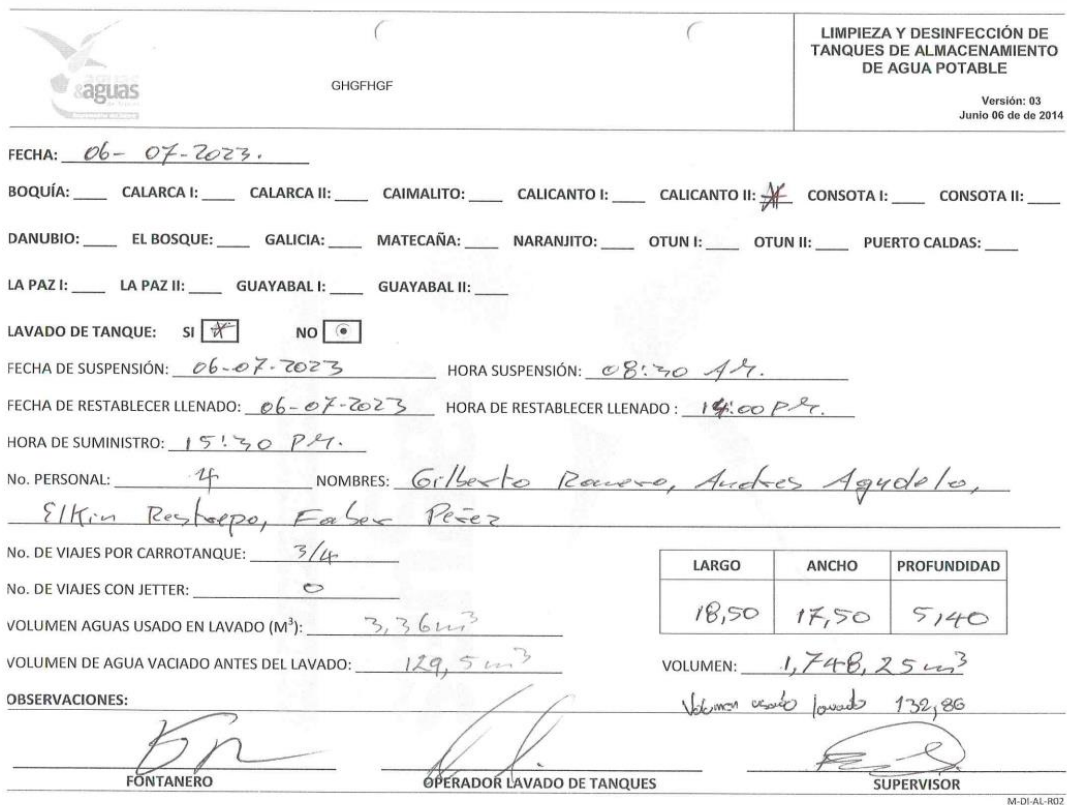 aguas
&aguas
GHGFHGF
LIMPIEZA Y DESINFECCIÓN DE
TANQUES DE ALMACENAMIENTO
DE AGUA POTABLE
Versión: 03
Junio 06 de de 2014
FECHA: 06-07-2023.
BOQUÍA: ____ CALARCA I: ____ CALARCA II: ____ CAIMALITO: ____ CALICANTO I: ____ CALICANTO II: X CONSOTA I: ____ CONSOTA II: ____
DANUBIO: ____ EL BOSQUE: ____ GALICIA: ____ MATECAÑA: ____ NARANJITO: ____ OTUN I: ____ OTUN II: ____ PUERTO CALDAS: ____
LA PAZ I: ____ LA PAZ II: ____ GUAYABAL I: ____ GUAYABAL II: ____
LAVADO DE TANQUE: SI X NO
FECHA DE SUSPENSIÓN: 06-07-2023 HORA SUSPENSIÓN: 08:30 A.M.
FECHA DE RESTABLECER LLENADO: 06-07-2023 HORA DE RESTABLECER LLENADO : 14:00 P.M.
HORA DE SUMINISTRO: 15:30 P.M.
No. PERSONAL: 4 NOMBRES: Gilberto Romero, Andres Agudelo,
Elkin Restrepo, Faber Perez
No. DE VIAJES POR CARROTANQUE: 3/4
No. DE VIAJES CON JETTER: 0
LARGO ANCHO PROFUNDIDAD
18,50 17,50 5,40
VOLUMEN AGUAS USADO EN LAVADO (M³): 3,36 m³
VOLUMEN DE AGUA VACIADO ANTES DEL LAVADO: 129,5 m³ VOLUMEN: 1,748,25 m³
OBSERVACIONES: Volumen usado lavado 132,86
FONTANERO OPERADOR LAVADO DE TANQUES SUPERVISOR
M-DI-AL-R02